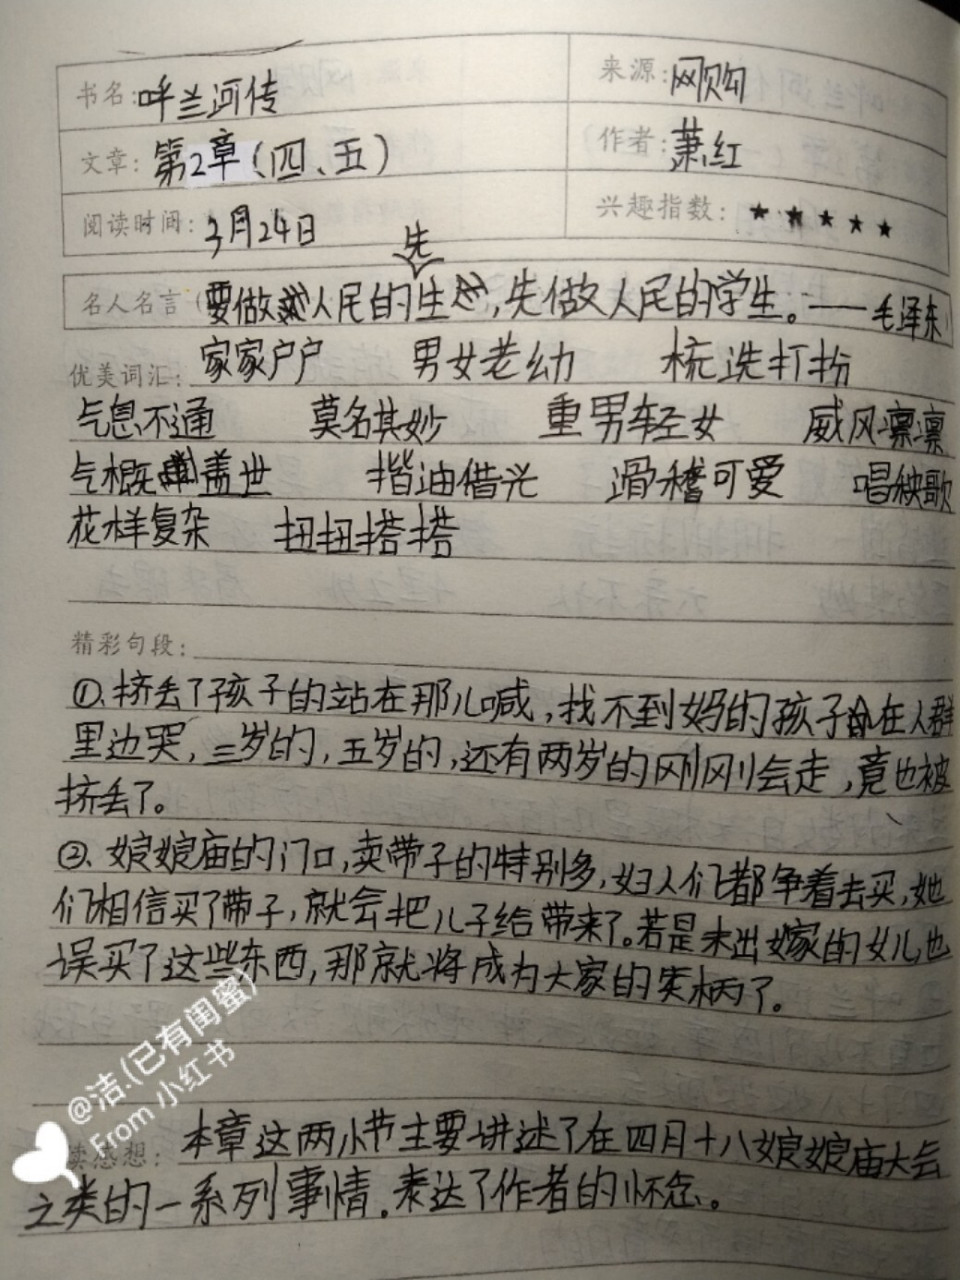 书名:呼兰河传 来源:网购
文章:第2章(四、五) 作者:萧红
阅读时间:3月24日 兴趣指数:★★★★★
名人名言(要做人民的先生,先做人民的学生。——毛泽东)
优美词汇:家家户户 男女老幼 梳洗打扮
气息不通 莫名其妙 重男轻女 威风凛凛
气概盖世 揩油借光 滑稽可爱 唱秧歌
花样复杂 扭扭搭搭
精彩句段:
①.挤丢了孩子的站在那儿喊,找不到妈的孩子在人群
里边哭,三岁的,五岁的,还有两岁的刚刚会走,竟也被
挤丢了。
②.娘娘庙的门口,卖带子的特别多,妇人们都争着去买,她
们相信买了带子,就会把儿子给带来了。若是未出嫁的女儿也
误买了这些东西,那就将成为大家的笑柄了。
读感想:本章这两小节主要讲述了在四月十八娘娘庙大会
之类的一系列事情。表达了作者的怀念。
@洁.(已有闺蜜)
From 小红书